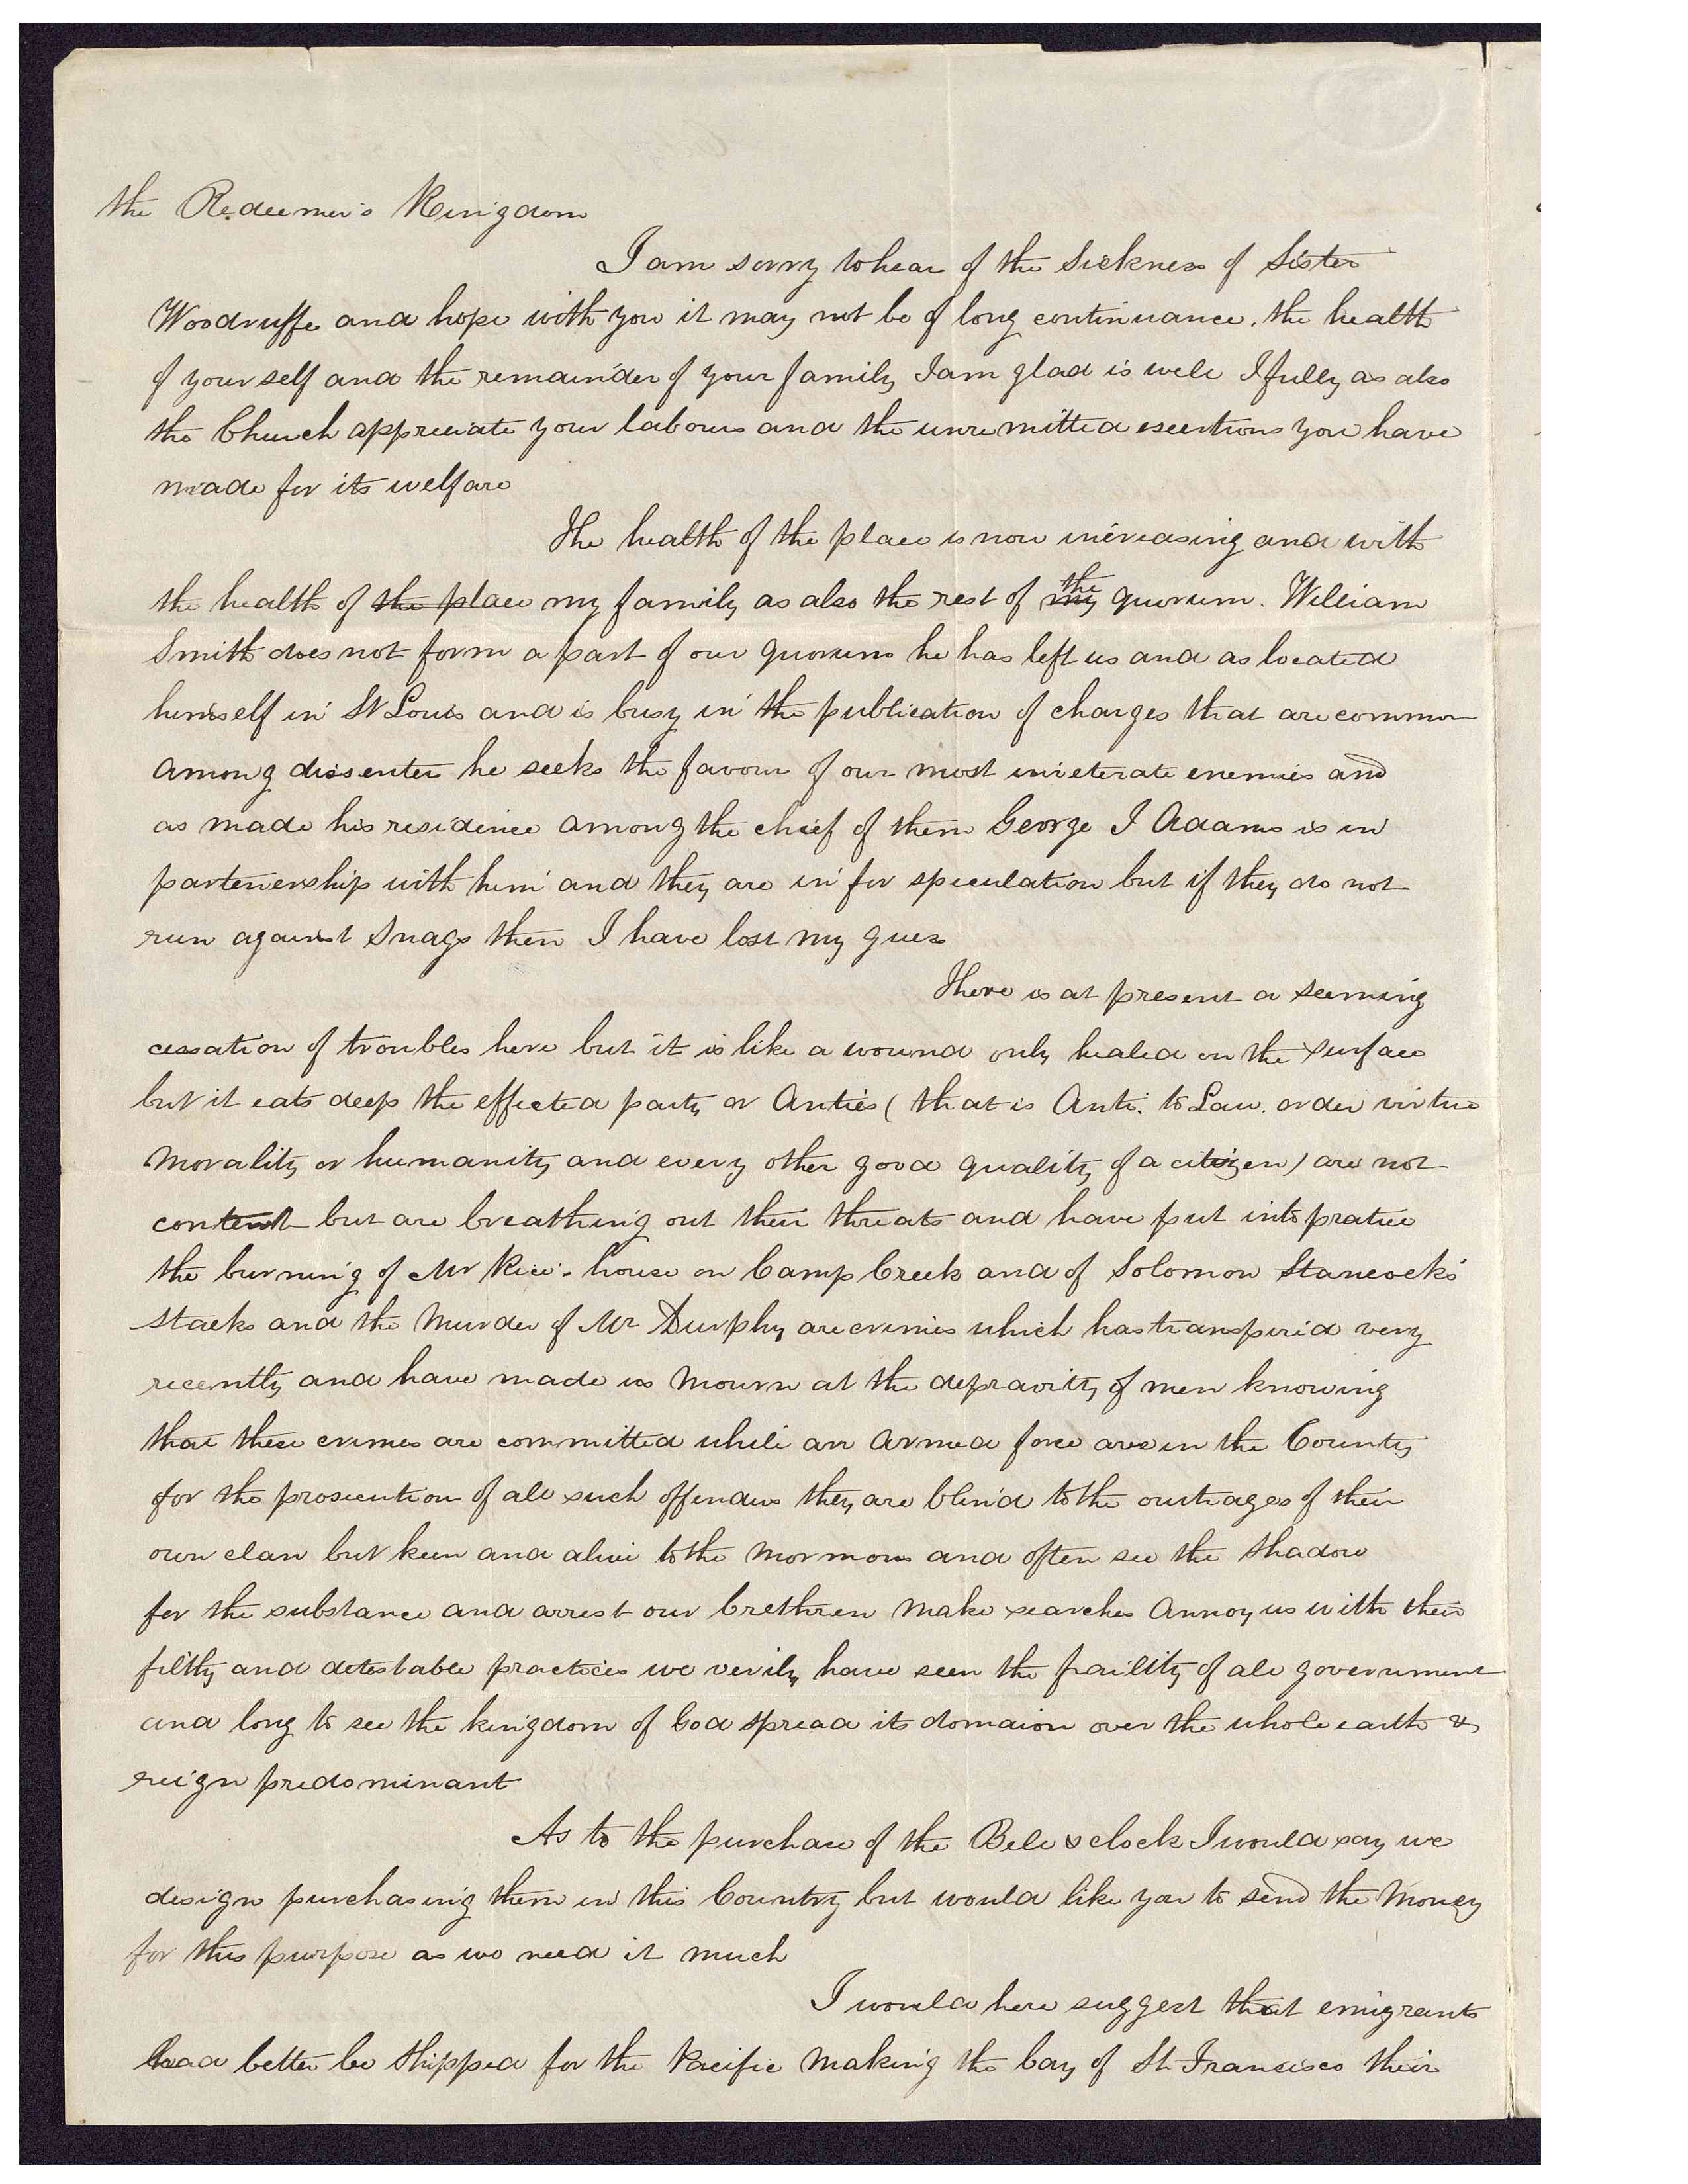 the Redeemer's Kingdom
I am sorry to hear of the Sickness of Sister
Woodruffe and hope with you it may not be of long continuance, the health
of yourself and the remainder of your family I am glad is well I fully as also
the Church appreciate your labours and the unremitted exertions you have
made for its welfare
The health of the place is now increasing and with
the health of the place my family as also the rest of my the quorum. William
Smith does not form a part of our quorum he has left us and as located
himself in St Louis and is busy in the publication of charges that are common
among dissenters he seeks the favour of our most inveterate enemies and
as made his residence among the chief of them George J Adams is in
partenership with him and they are in for speculation but if they do not
run against Snags then I have lost my guess
There is at present a seeming
cessation of troubles here but it is like a wound only healed on the surface
but it eats deep the effected party or Anties (that is Anti. to Law. order virtue
Morality or humanity and every other good quality of a citizen) are not
content but are breathing out their threats and have put into pratice
the burning of Mr Rice's house on Camp Creek and of Solomon Hancock's
stacks and the Murder of Mr Durphy are crimes which has transpired very
recently and have made us Mourn at the depravity of men knowing
that these crimes are committed while an Armed force are in the County
for the prosecution of all such offenders they are blind to the outrages of their
own clan but keen and alive to the Mormons and often see the shadow
for the substance and arrest our brethren Make searches Annoy us with their
filthy and detestable practices we verily have seen the fraility of all government
and long to see the kingdom of God spread its domaion over the whole earth &
reign predominant
As to the purchase of the Bell & clock I would say we
design purchasing them in this Country but would like you to send the Money
for this purpose as we need it much
I would here suggest that emigrants
had better be shipped for the Pacific Making the bay of St Francisco their